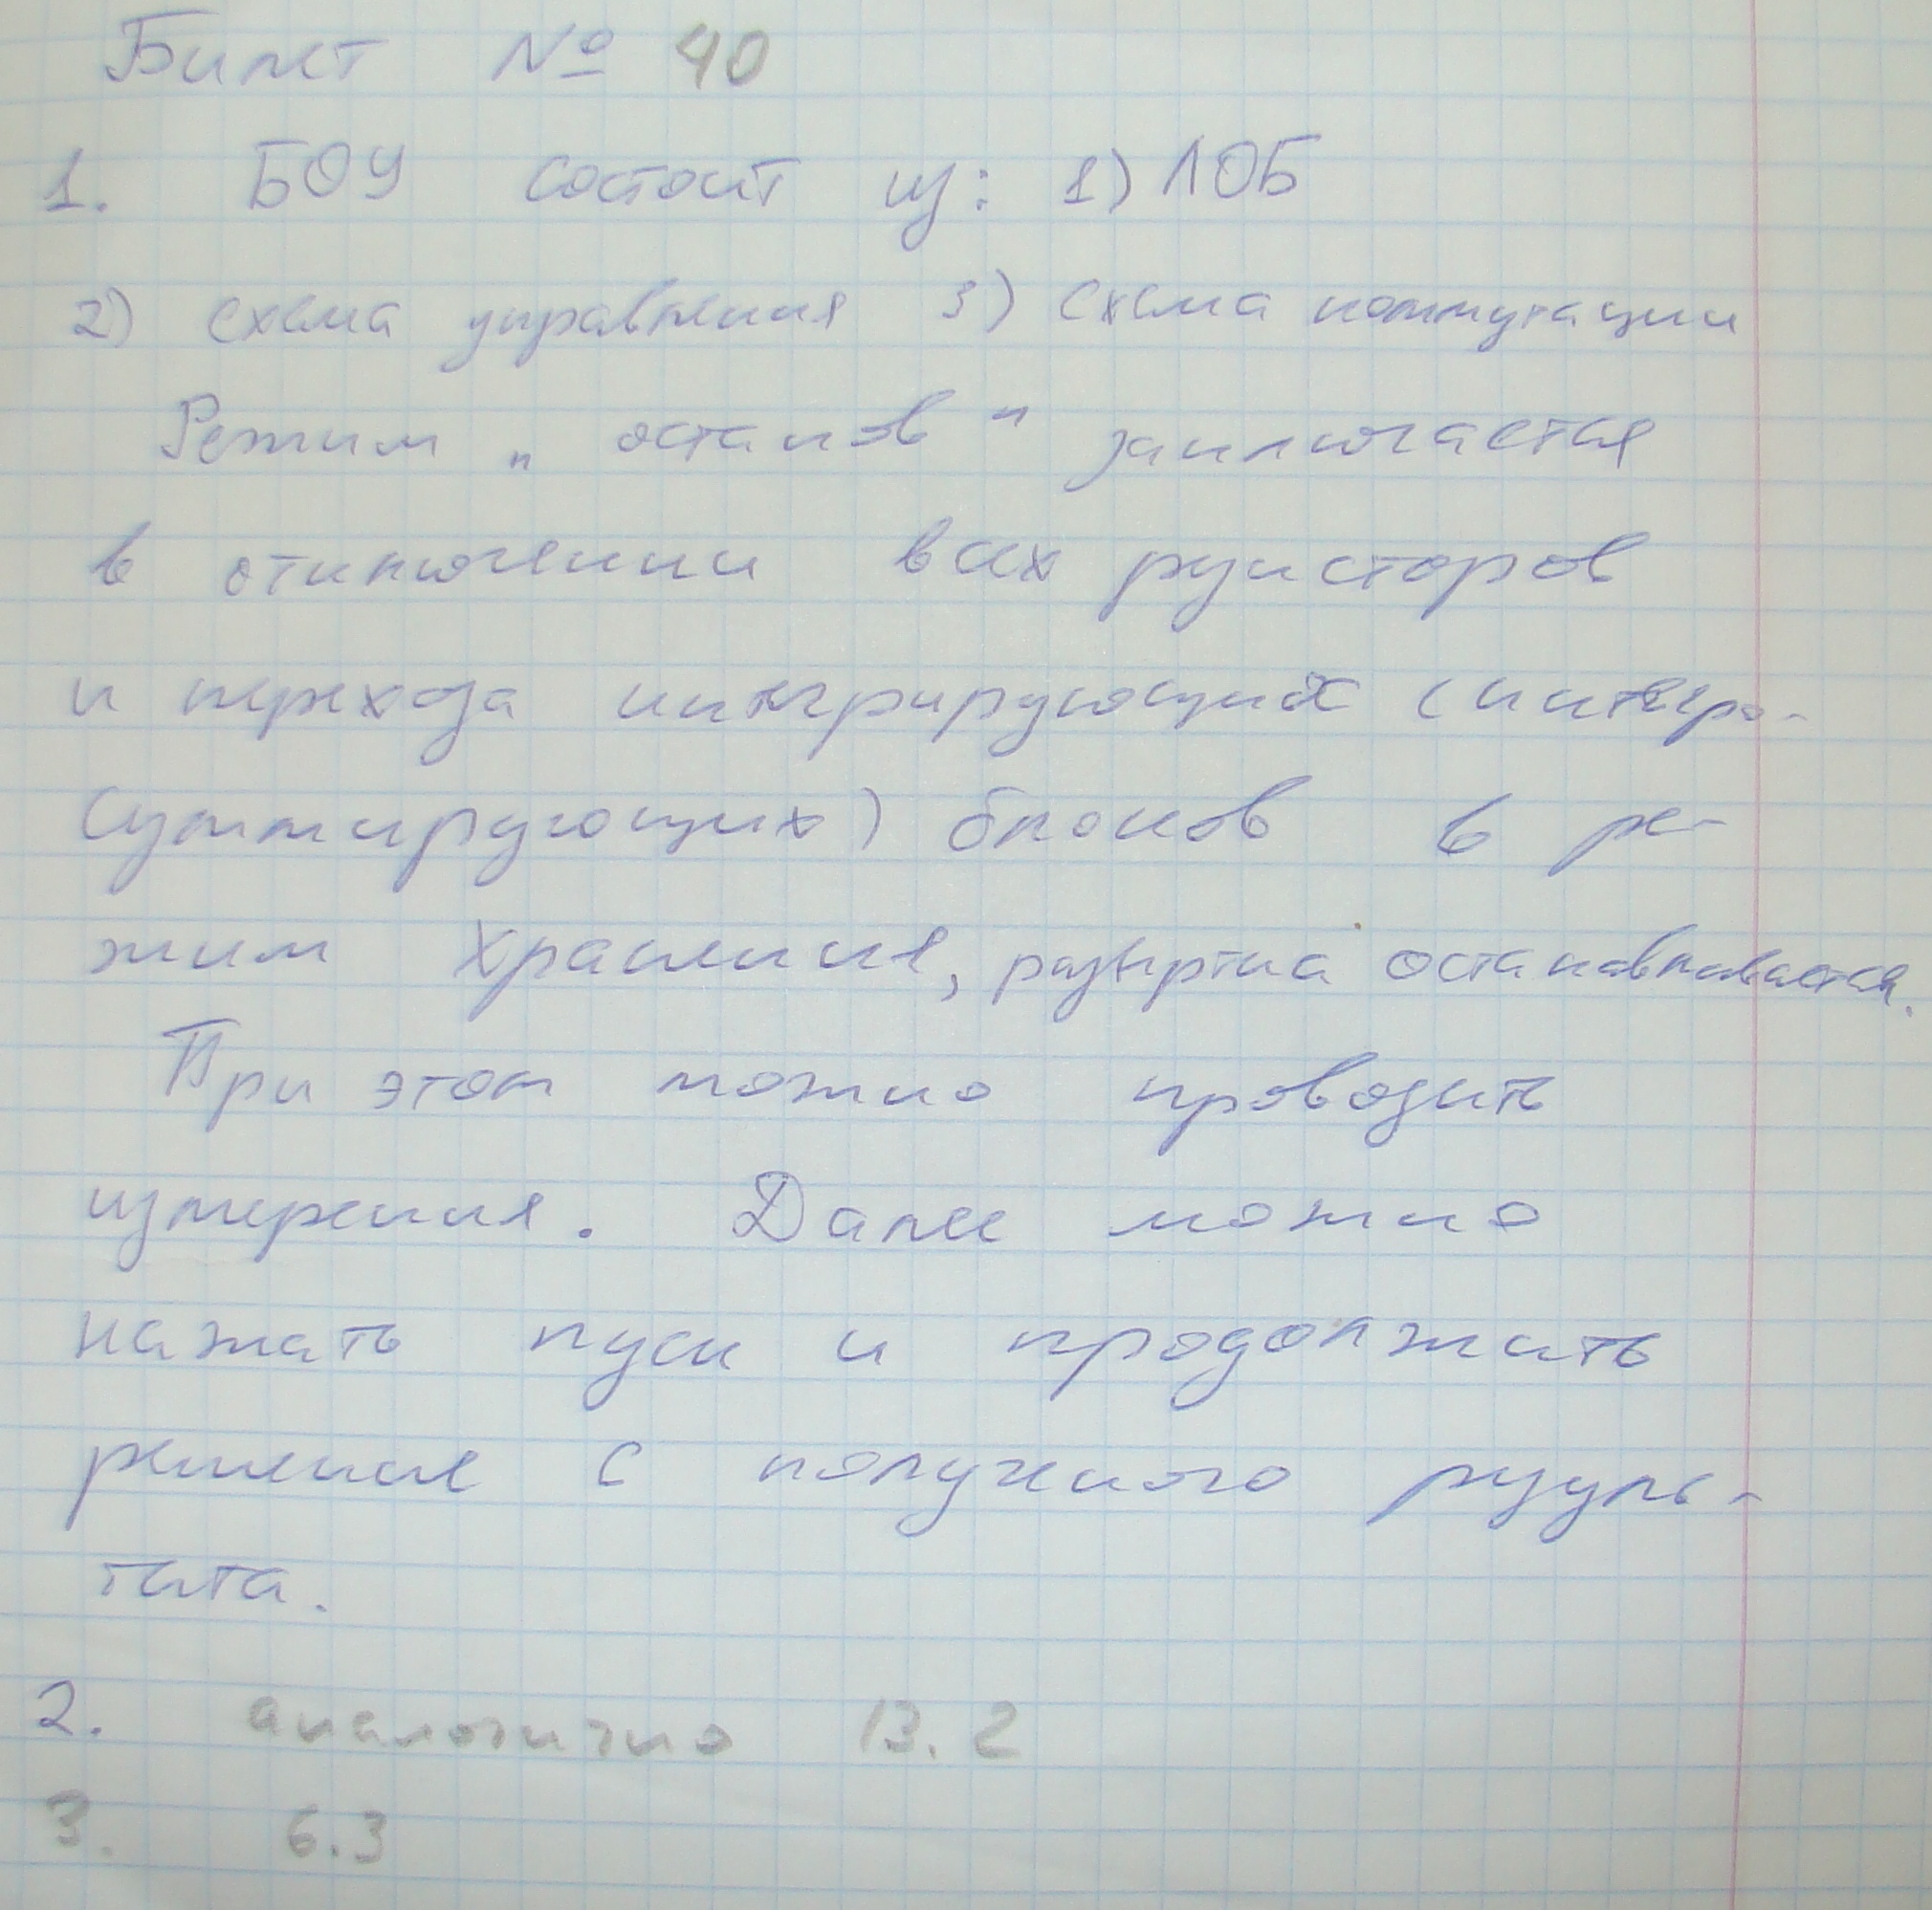 Билет № 40
1. БОУ состоит из: 1) ЛОБ
2) схема управления 3) схема коммутации
Режим „ останов " заключается
в отключении всех резисторов
и перехода интегрирующих (интегро-
суммирующих) блоков в ре-
жим хранения, развёртка останавливается.
При этом можно проводить
измерения. Далее можно
нажать пуск и продолжить
решение с полученого резуль-
тата.
2. аналогично 13.2
3. 6.3